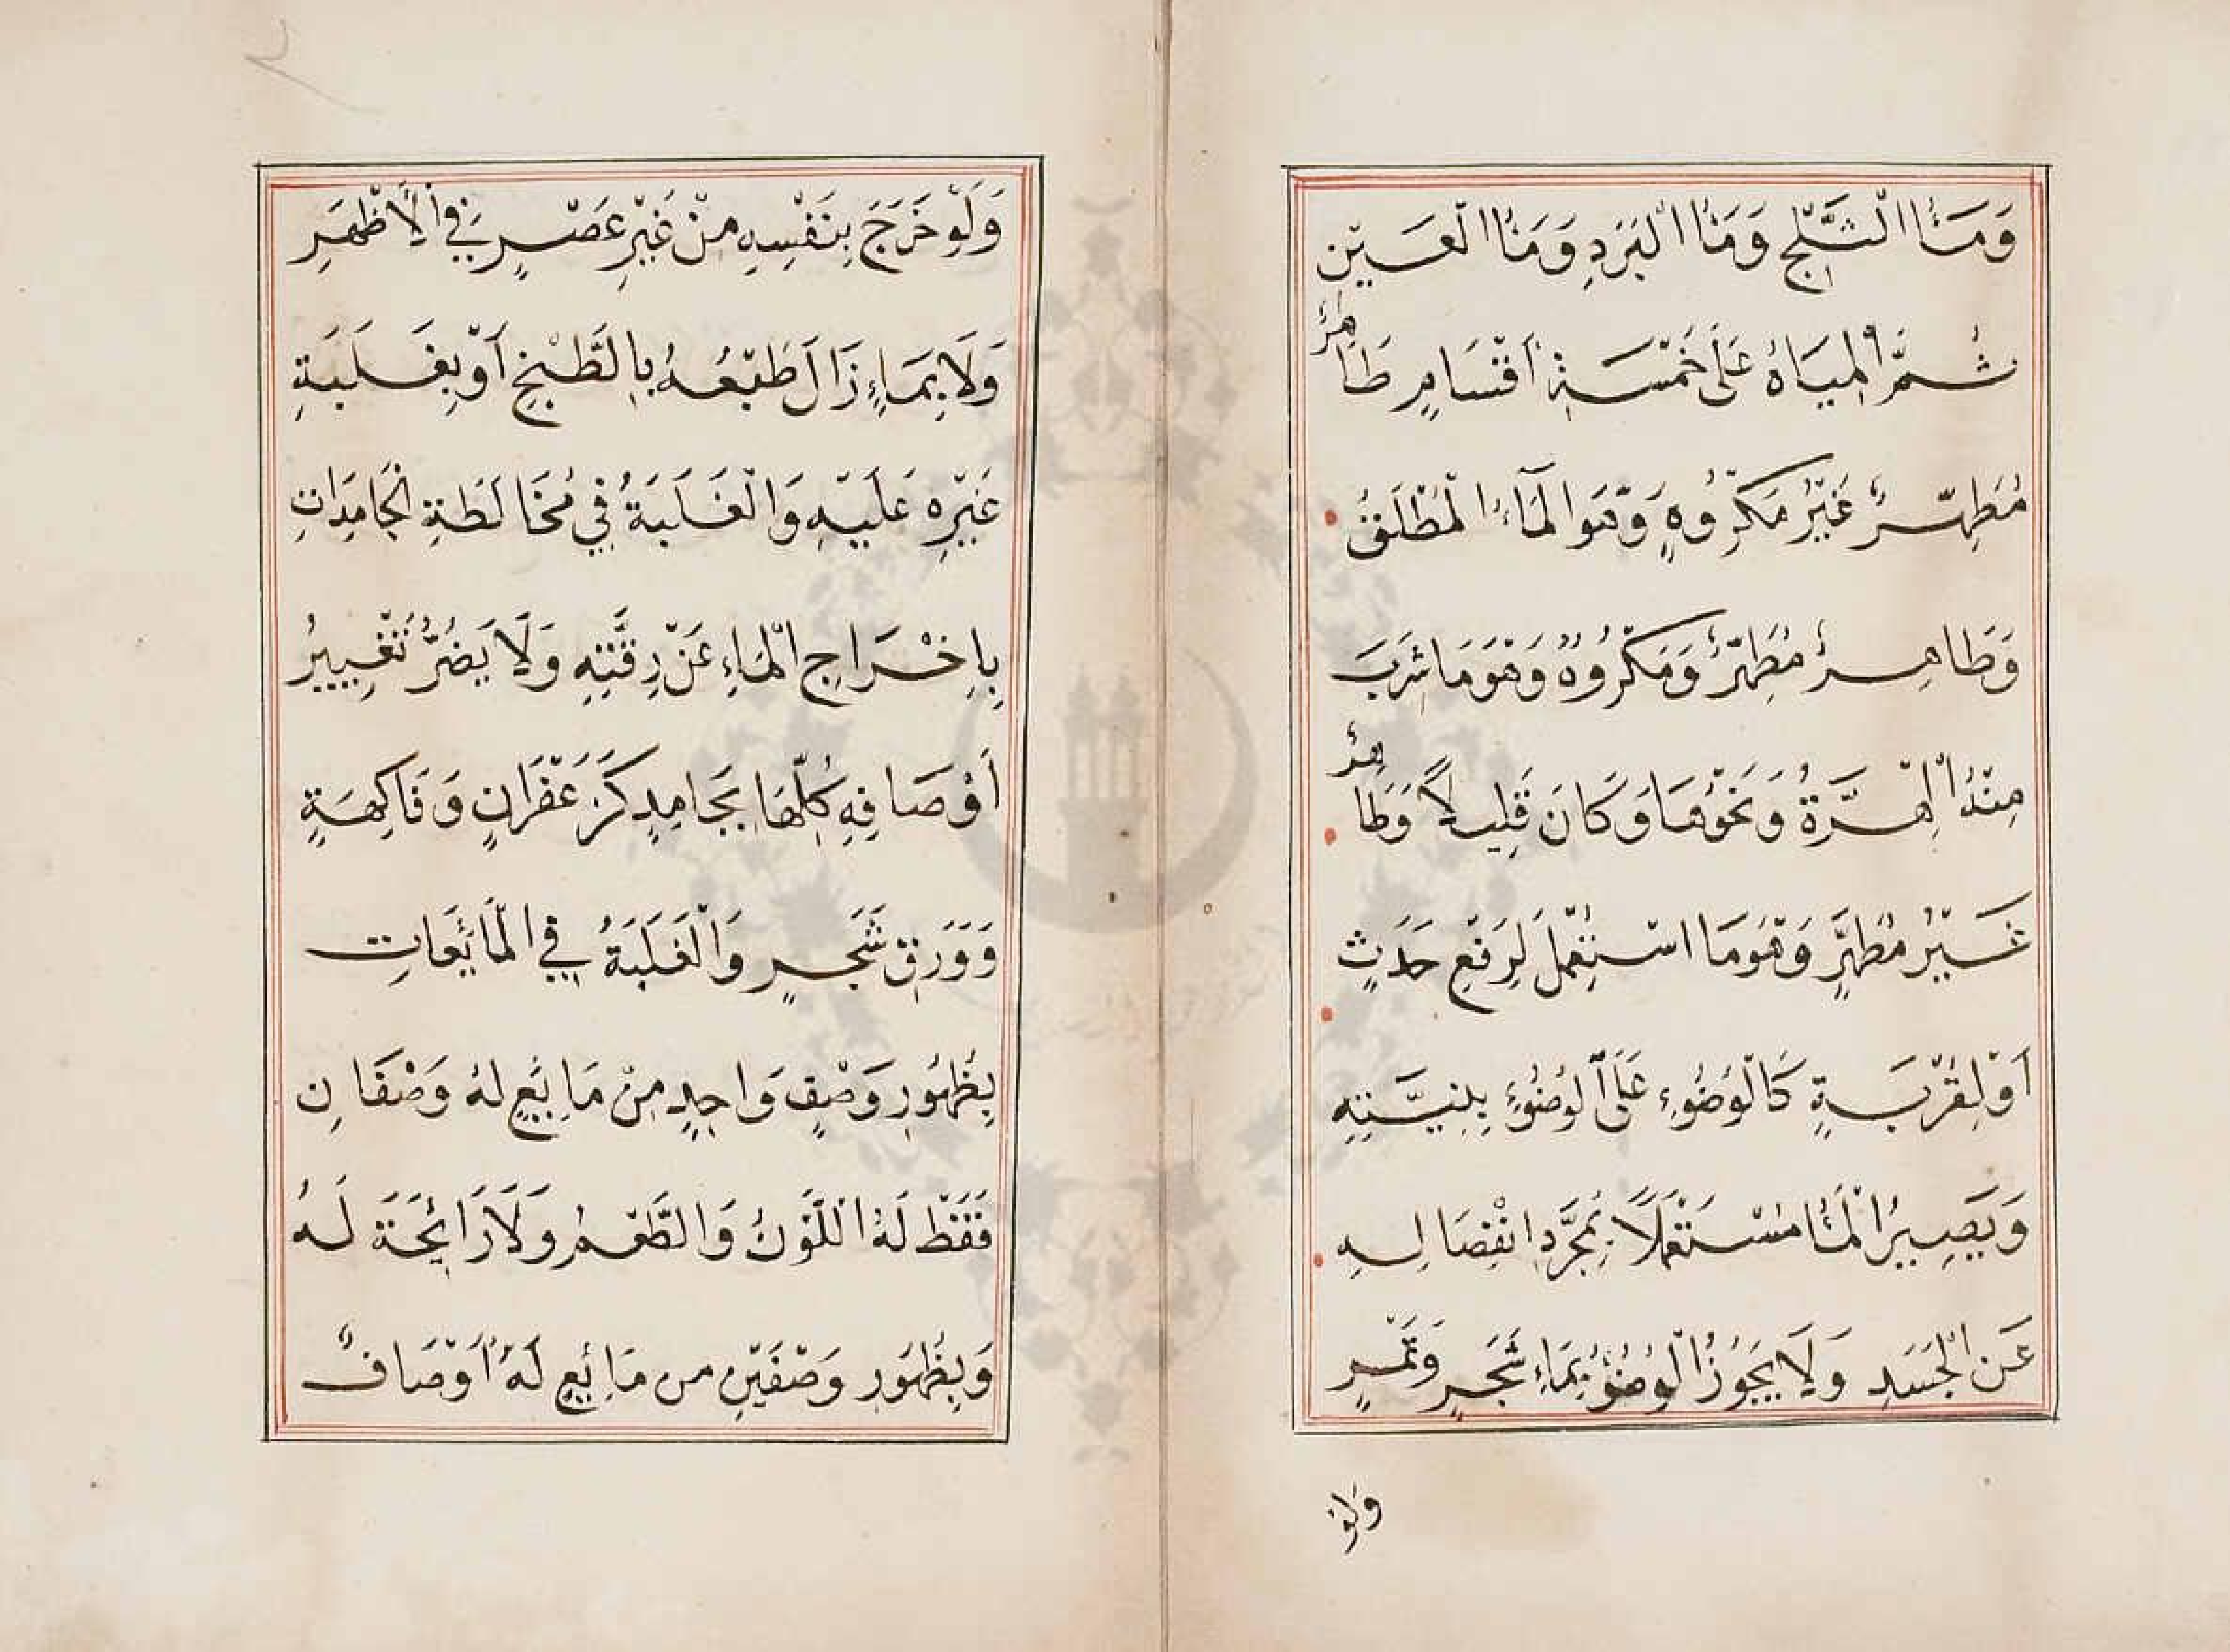 وَمَاءُ الثَّلْجِ وَمَاءُ الْبَرَدِ وَمَاءُ الْعَيْنِ
ثُمَّ الْمِيَاهُ عَلَى خَمْسَةِ أَقْسَامٍ طَاهِرٌ
مُطَهِّرٌ غَيْرُ مَكْرُوهٍ وَهُوَ الْمَاءُ الْمُطْلَقُ
وَطَاهِرٌ مُطَهِّرٌ وَمَكْرُوهٌ وَهُوَ مَا شَرِبَ
مِنْهُ الْهِرَّةُ وَنَحْوُهَا وَكَانَ قَلِيلاً وَطَاهِرٌ
غَيْرُ مُطَهِّرٍ وَهُوَ مَا اسْتُعْمِلَ لِرَفْعِ حَدَثٍ
أَوْ لِقُرْبَةٍ كَالْوُضُوءِ عَلَى الْوُضُوءِ بِنِيَّتِهِ
وَيَصِيرُ الْمَاءُ مُسْتَعْمَلاً بِمُجَرَّدِ انْفِصَالِهِ
عَنِ الْجَسَدِ وَلَا يَجُوزُ الْوُضُوءُ بِمَاءِ شَجَرٍ وَثَمَرٍ
وَلَوْ
وَلَوْ خَرَجَ بِنَفْسِهِ مِنْ غَيْرِ عَصْرٍ فِي الْأَظْهَرِ
وَلَا بِمَاءٍ زَالَ طَبْعُهُ بِالطَّبْخِ أَوْ بِغَلَبَةِ
غَيْرِهِ عَلَيْهِ وَالْغَلَبَةُ فِي مُخَالَطَةِ الْجَامِدَاتِ
بِإِخْرَاجِ الْمَاءِ عَنْ رِقَّتِهِ وَلَا يَضُرُّ تَغْيِيرُ
أَوْصَافِهِ كُلِّهَا بِجَامِدٍ كَزَعْفَرَانٍ وَفَاكِهَةٍ
وَوَرَقِ شَجَرٍ وَالْغَلَبَةُ فِي الْمَائِعَاتِ
بِظُهُورِ وَصْفٍ وَاحِدٍ مِنْ مَائِعٍ لَهُ وَصْفَانِ
فَقَطْ لَهُ اللَّوْنُ وَالطَّعْمُ وَلَا رَائِحَةَ لَهُ
وَبِظُهُورِ وَصْفَيْنِ من مَائِعٍ لَهُ أَوْصَافٌ